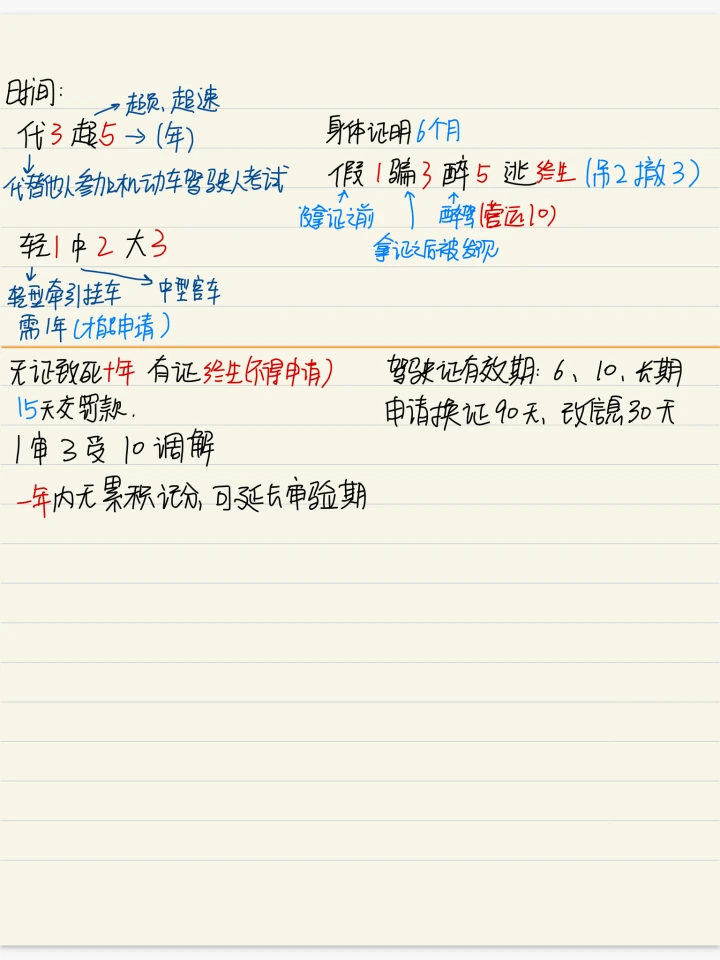 时间：
→超员、超速
代3超5→(年)
代替他人参加机动车驾驶人考试
轻1中2大3
轻型牵引挂车
中型客车
需1年(才能申请)
身体证明6个月
假1骗3醉5逃终生(吊2撤3)
没拿证之前
醉驾(营运10)
拿证之后被发现
无证致死十年 有证终生(不得申请)
15天交罚款.
1审3受10调解
一年内无累积记分,可延长审验期
驾驶证有效期：6、10、长期
申请换证90天、改信息30天